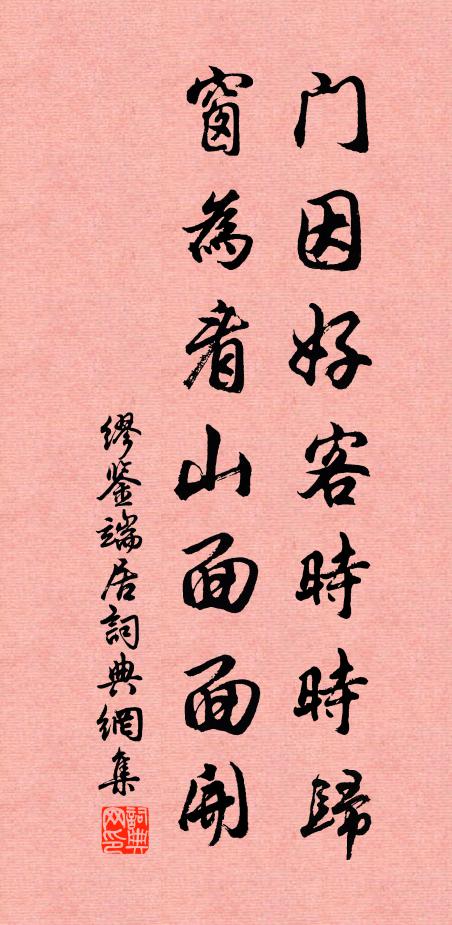 门因好客時時歸
窗為看山面面開
繆鉴端居詞典網集
詞典网印